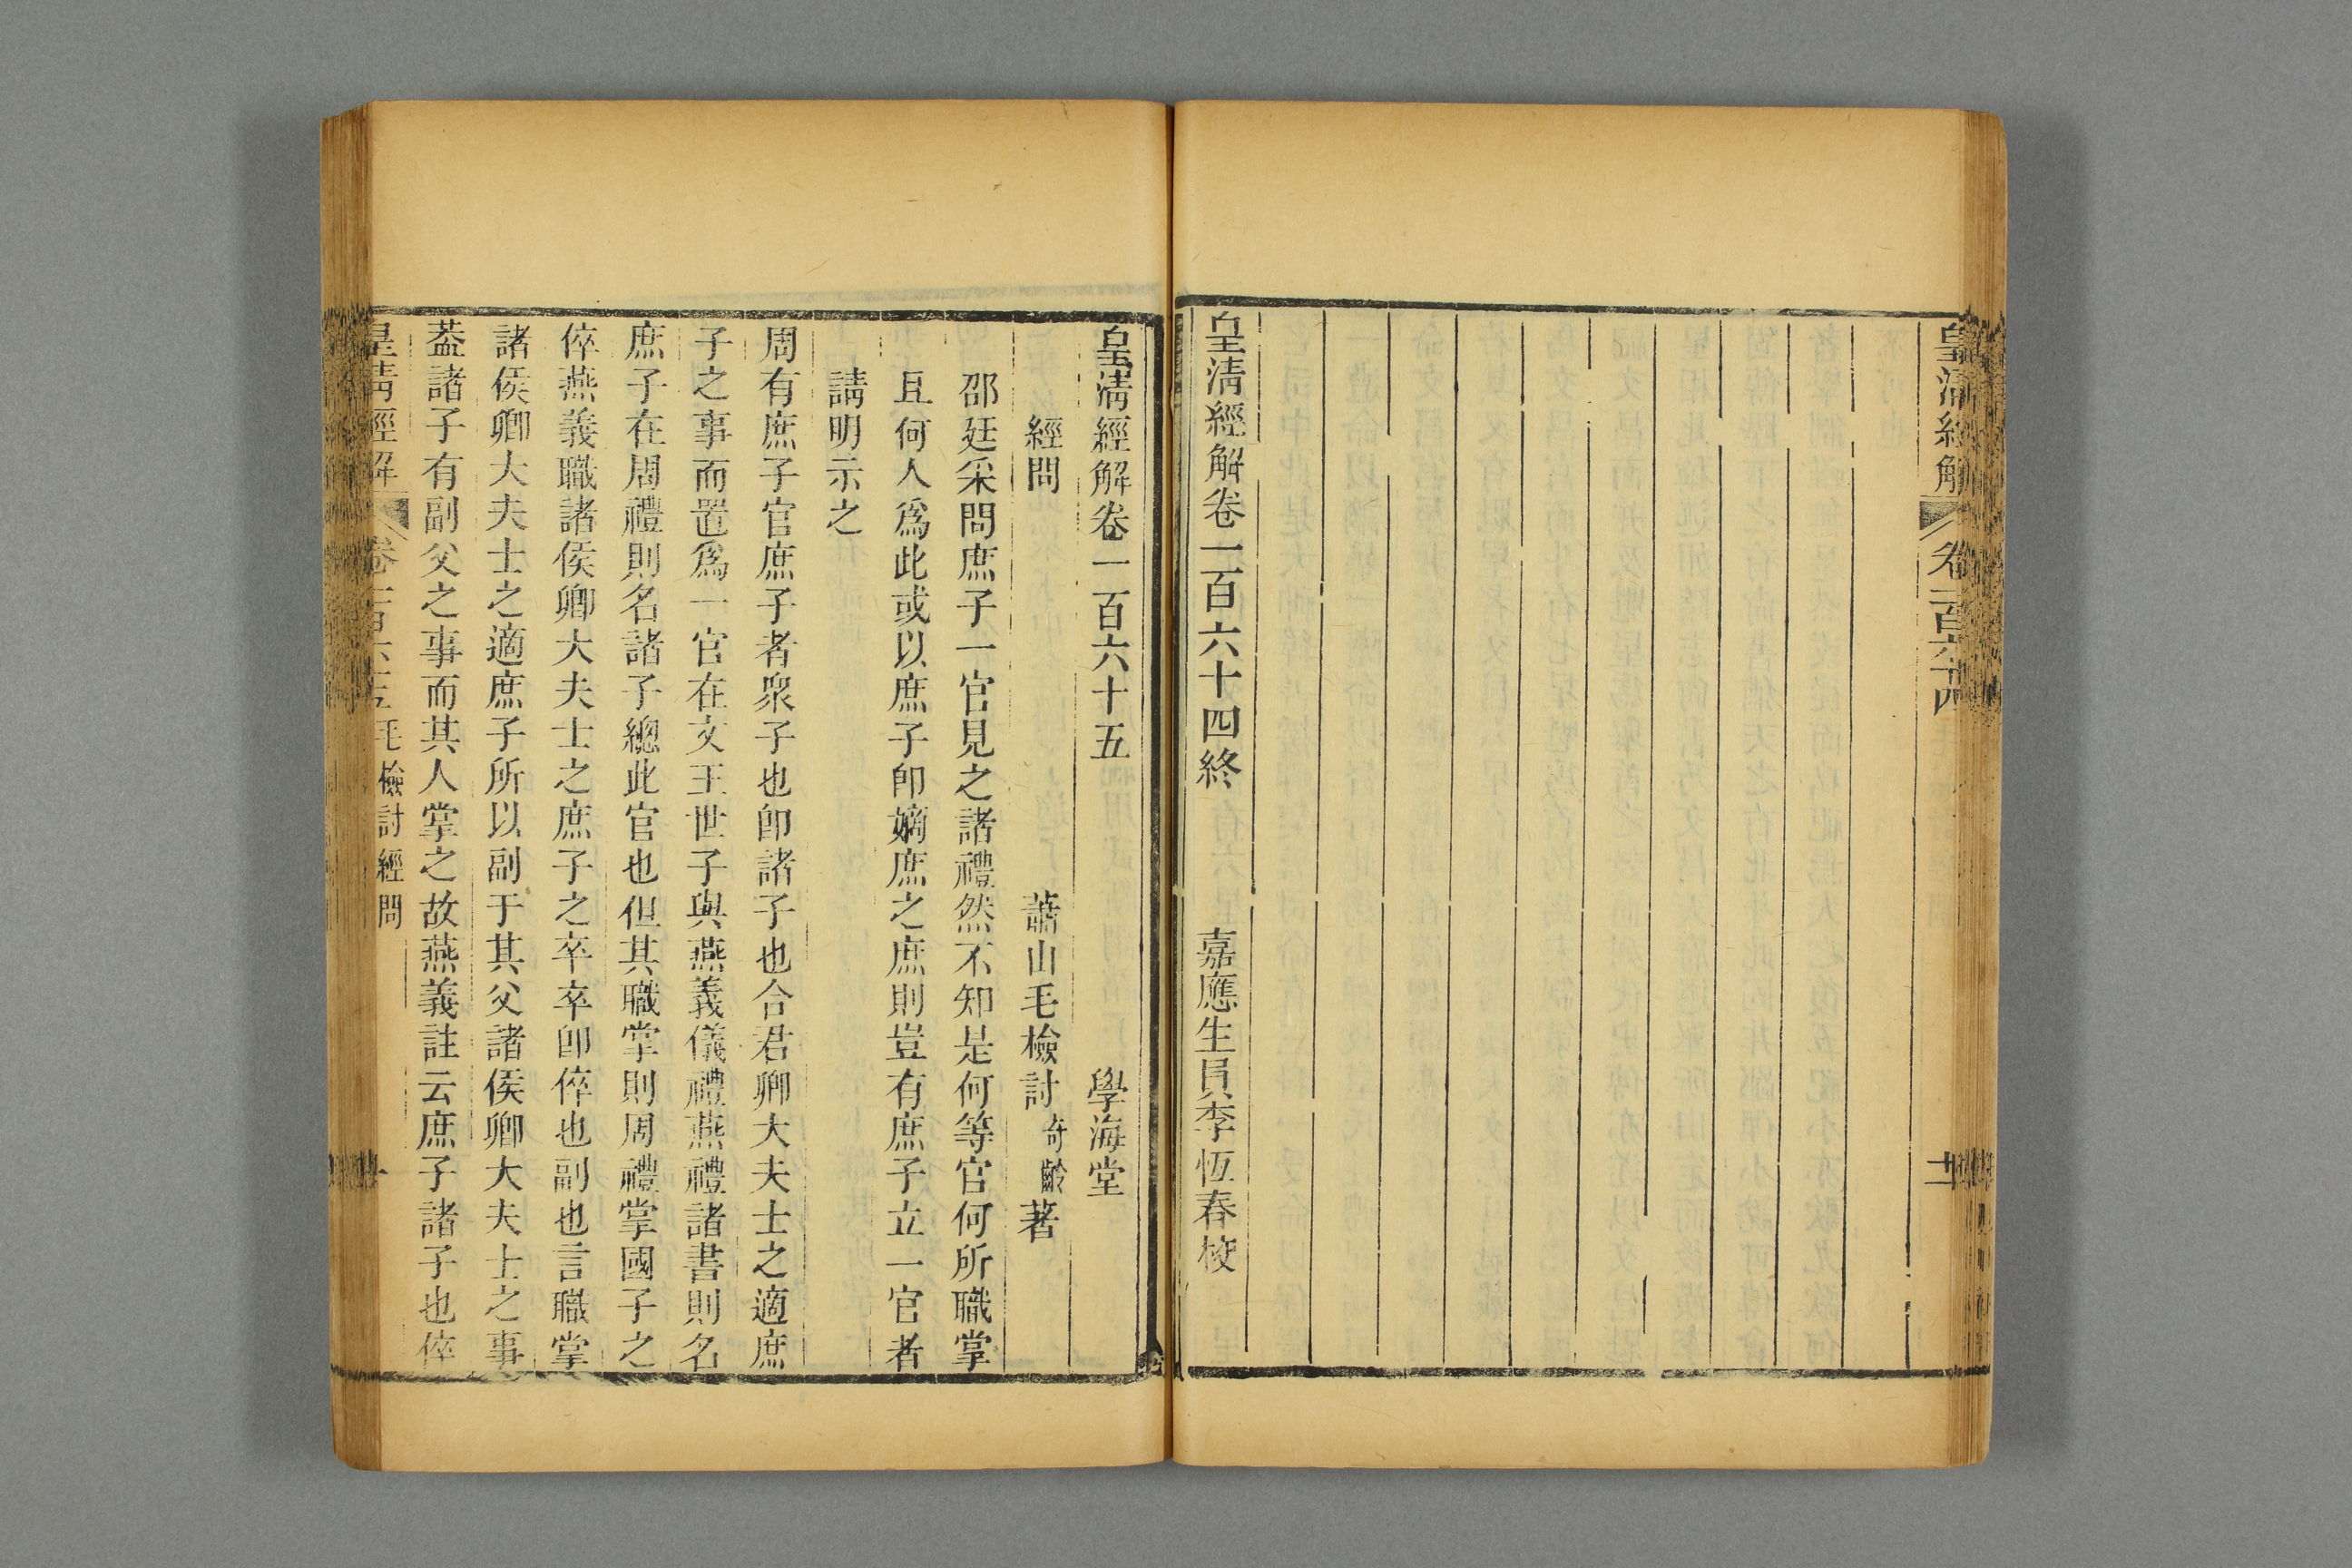 皇清經解 卷一百六十四
十二
皇清經解卷一百六十四終 嘉應生員李恆春校
皇清經解卷一百六十五 學海堂
經問 蕭山毛檢討奇齡著
邵廷采問庶子一官見之諸禮然不知是何等官何所職掌
且何人爲此或以庶子卽嫡庶之庶則豈有庶子立一官者
請明示之
周有庶子官庶子者衆子也卽諸子也合君卿大夫士之適庶
子之事而置爲一官在文王世子與燕義儀禮燕禮諸書則名
庶子在周禮則名諸子總此官也但其職掌則周禮掌國子之
倅燕義職諸侯卿大夫士之庶子之卒卒卽倅也副也言職掌
諸侯卿大夫士之適庶子所以副于其父諸侯卿大夫士之事
葢諸子有副父之事而其人掌之故燕義註云庶子諸子也倅
皇清經解 卷一百六十五 毛檢討經問